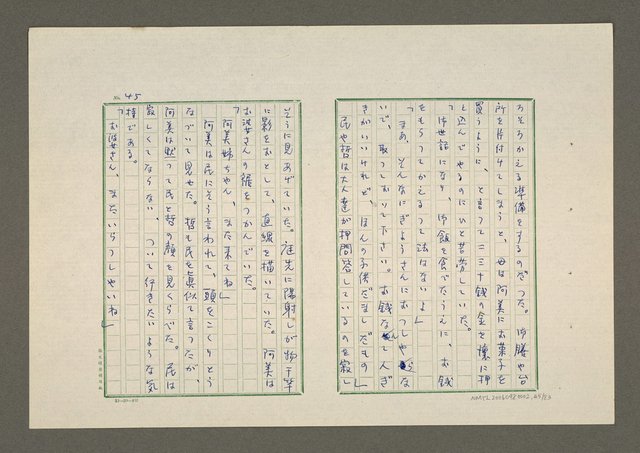 ろそろかえる準備をするのだった。御膳や台
所を片付けてしまうと、母は阿美にお菓子を
買うように、と言って二三十銭の金を懐に押
し込んでやるのにひと苦労していた。
「御世話になり、御飯を食べたうえに、お銭
をもらってかえるって法はないよ」
「まあ、そんなにぎょうさんにおっしゃらな
いで、取っておいて下さい。お銭なんてんぎ
きがいいけれど、ほんの子供だましだもの」
民や哲は大人達が押問答しているのを寂し
No. 45
そうに見あげていた。庭先に陽射しが物干竿
に影をおとして、直線を描いていた。阿美は
お婆さんの裾をつかんでいた。
「阿美姉ちゃん、また来てね」
阿美は民にそう言われて、頭をこくりとう
なづいて見せた。哲も民を真似て言ったが、
阿美は黙って民と哲の顔を見くらべた。民は
寂しくてならない、ついて行きたいような気
持である。
「お婆さん、またいらっしゃいね」
NMTL20060980002.45/53